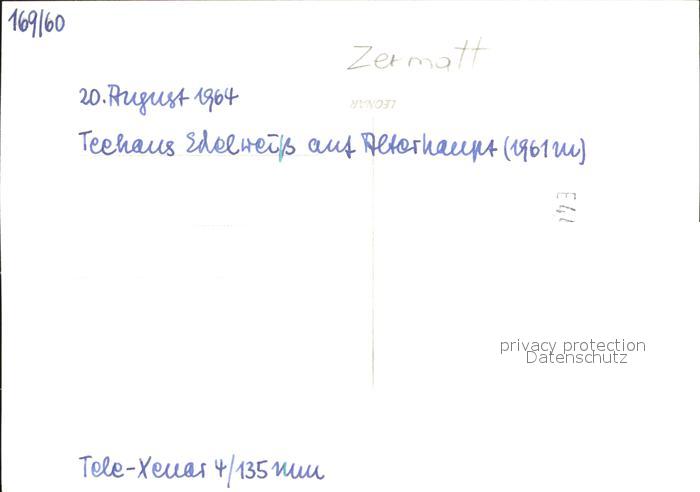 169/60
Zermatt
20. August 1964
LEONAR
Teehaus Edelweiß auf Alterhaupt (1961 m)
privacy protection
Datenschutz
Tele-Xenar 4/135 mm